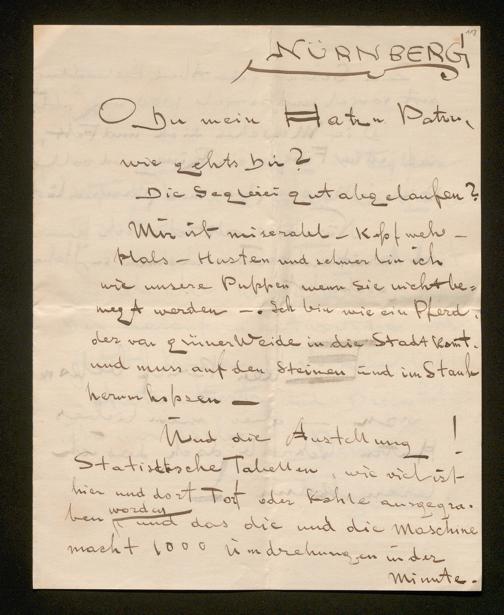 NÜRNBERG!
O Du mein Hatn Patrn,
wie gehts Dir?
Die Seglerei gut abgelaufen?
Mir ist miserabl – Kopfweh –
Hals – Husten und schwer bin ich
wie unsere Puppen wenn Sie nicht be=
wegt werden –. Ich bin wie ein Pferd,
der von grüner Weide in die Stadt komt.
und muss auf den Steinen und im Staub
herumhopsen —
Und die Austellung!
Statistische Tabellen, wie viel ist
hier und dort Torf oder Kohle ausgegra=
ben worden und das die und die Maschine
macht 1000 Umdrehungen in der
Minute.